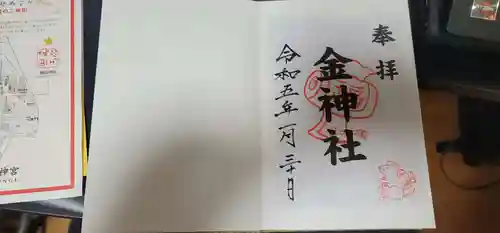 奉拝
金神社
令和五年一月三十日
神宮